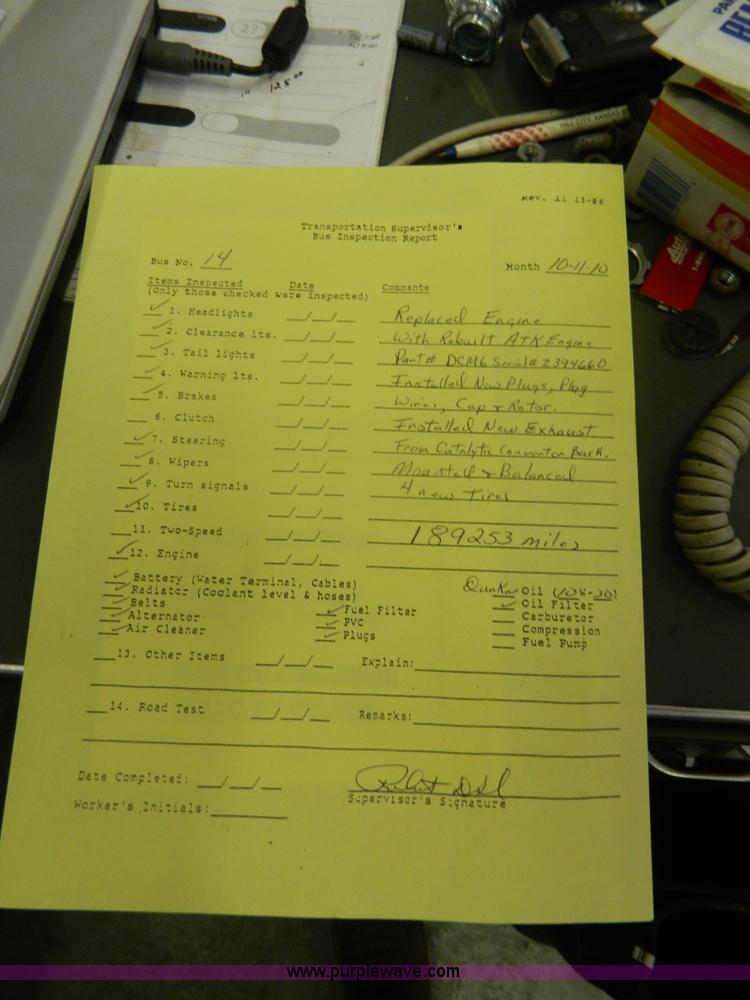 27
125.00
HILL CITY, KANSAS
Rev. 11-13-86
Transportation Supervisor's
Bus Inspection Report
Bus No. 14
Month 10-11-10
Items Inspected Date Comments
(Only those checked were inspected)
✓ 1. Headlights __/__/__ Replaced Engine
✓ 2. Clearance lts. __/__/__ With Rebuilt ATK Engine
✓ 3. Tail lights __/__/__ Part# DCM6 Serial# 2394660
✓ 4. Warning lts. __/__/__ Installed New Plugs, Plug
✓ 5. Brakes __/__/__ Wires, Cap & Rotor.
__ 6. Clutch __/__/__ Installed New Exhaust
✓ 7. Steering __/__/__ From Catalytic Converter Back.
✓ 8. Wipers __/__/__ Mounted & Balanced
✓ 9. Turn signals __/__/__ 4 new Tires
✓ 10. Tires __/__/__
__ 11. Two-Speed __/__/__ 189253 miles
✓ 12. Engine __/__/__
✓ Battery (Water Terminal, Cables)
✓ Radiator (Coolant level & hoses)
✓ Belts
✓ Alternator
✓ Air Cleaner
✓ Fuel Filter
✓ PVC
✓ Plugs
Oil (10W-30)
✓ Oil Filter
__ Carburetor
__ Compression
__ Fuel Pump
__ 13. Other Items __/__/__ Explain:
__ 14. Road Test __/__/__ Remarks:
Date Completed: __/__/__
Supervisor's Signature
Worker's Initials:
www.purplewave.com